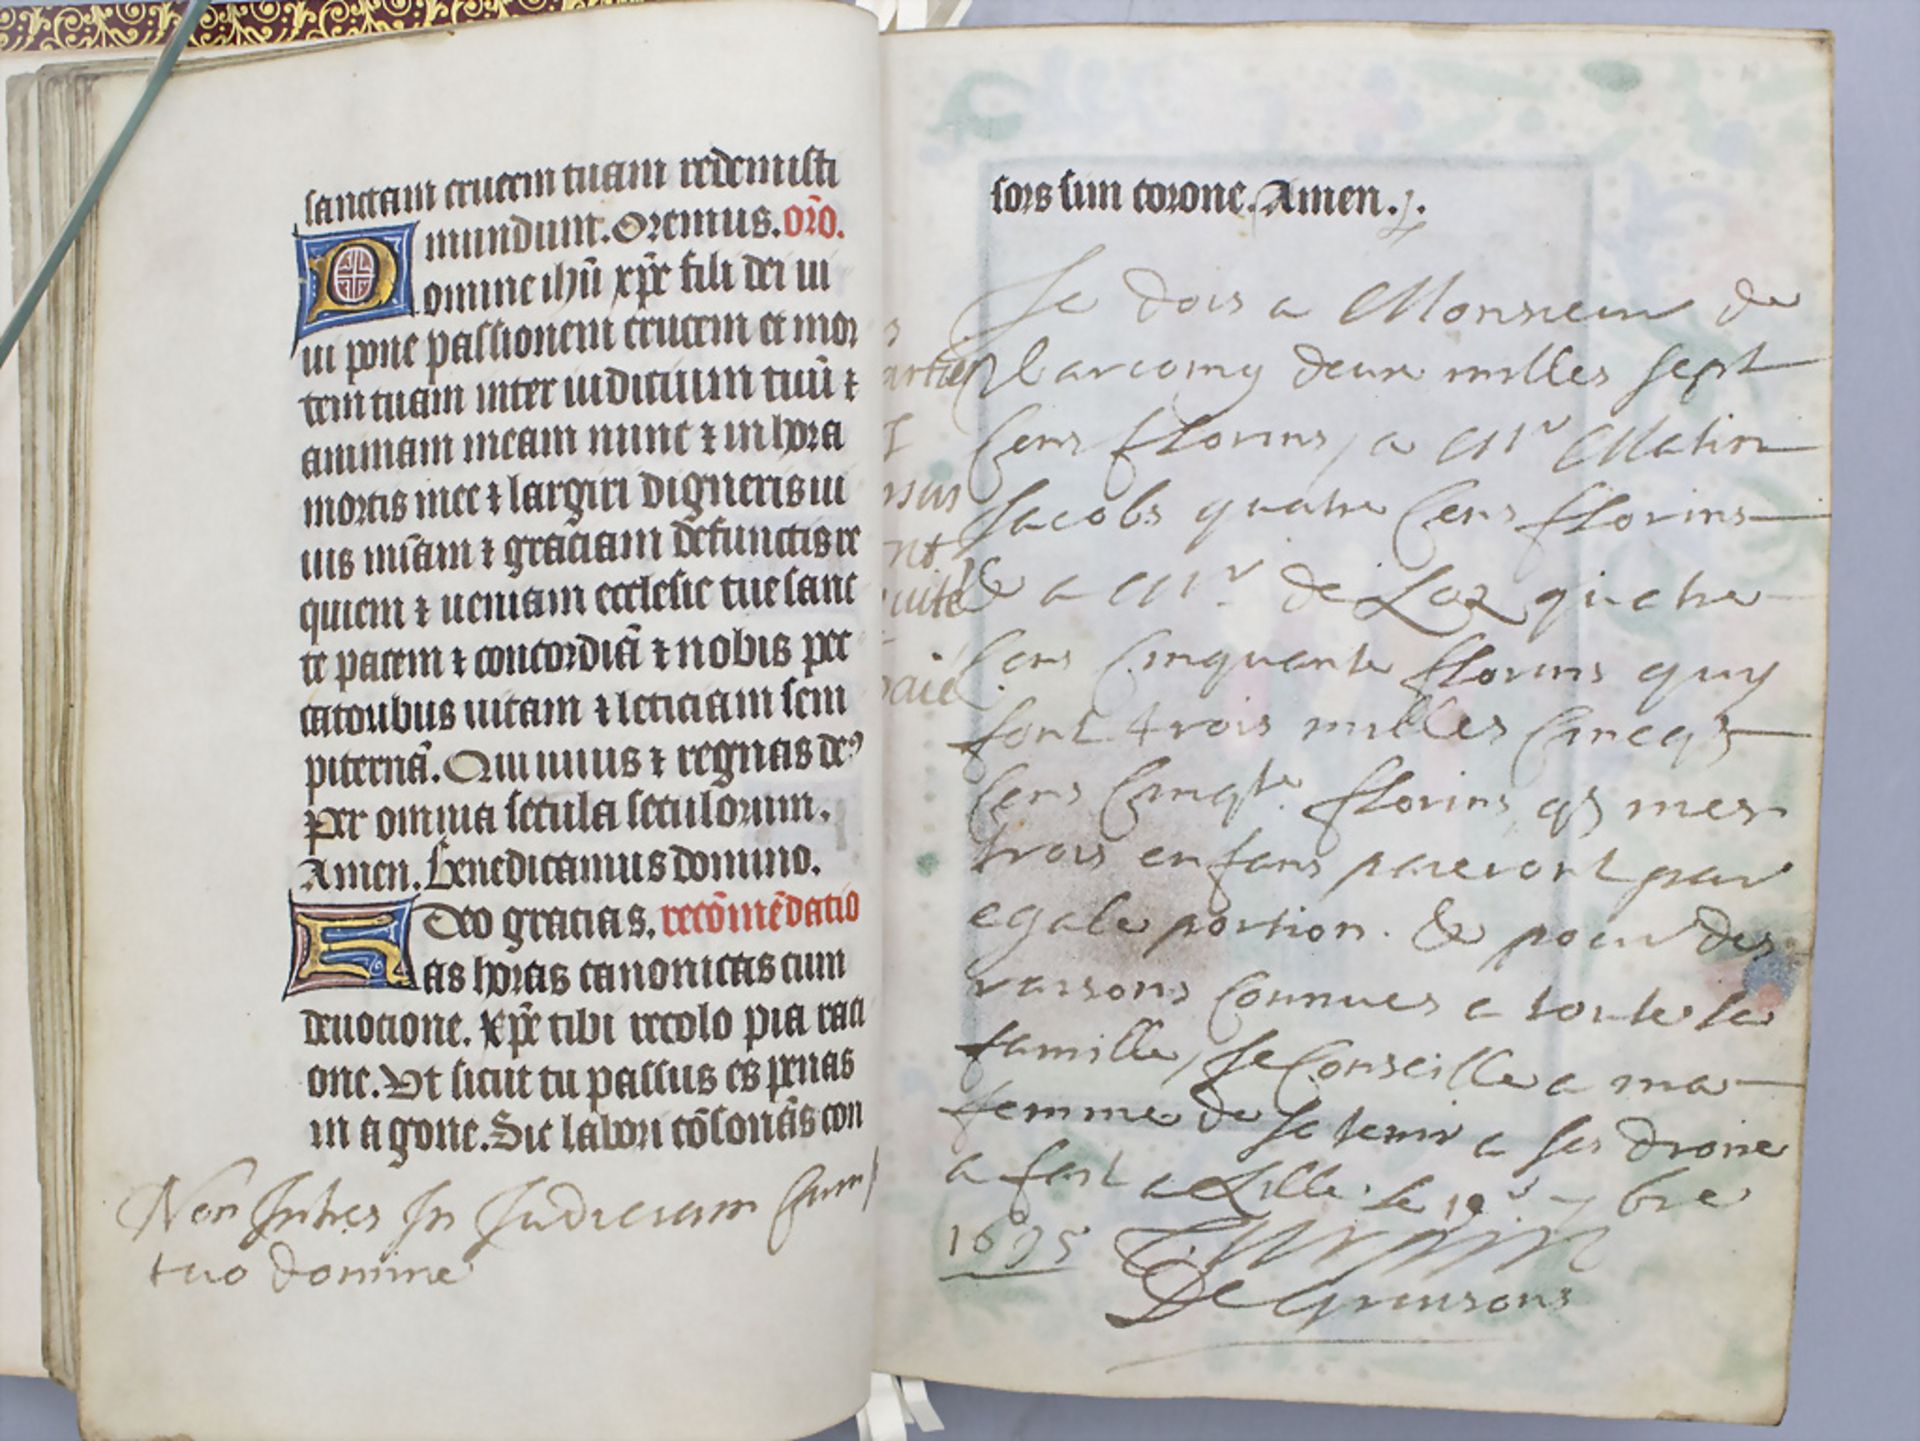 sanctam crucem tuam redemisti
mundum. Oremus. orõ.
Domine ihũ xp̃e fili dei ui
ui pone passionem crucem et mor
tem tuam inter iudicium tuũ ⁊
animam meam nunc ⁊ in hora
mortis mee ⁊ largiri digneris ui
uis mĩam ⁊ grãciam defunctis re
quiem ⁊ ueniam ecclesie tue sanc
te pacem ⁊ concordiã ⁊ nobis pec
catoribus uitam ⁊ leticiam sem
piternã. Qui uiuis ⁊ regnas deꝰ
Per omnia secula seculorum.
Amen. Benedicamus domino.
Deo gracias. recõmẽdatio
Has horas canonicas cum
deuocione. xp̃e tibi recolo pia raci
one. Ut sicut tu passus es penas
in agone. Sic labori cõsonãs con
Non Intres In Judicium Cum
tuo domine
sors sim corone. Amen.
Je dois a Monsieur de
deux milles sept
Cens florins, a Mr Matin
Jacobs quatre Cens florins
& a Mr. de Laz quatre
Cens Cinquante florins quy
font trois milles Cincqs
Cens Cinqte. florins qs mes
trois enfans paieront par
egale portion. & pour des
raisons Connues a toute la
famille, Je Conseille a ma
femme de se tenir a ses droits
a fait a Lille le bre
1695
De Grusons